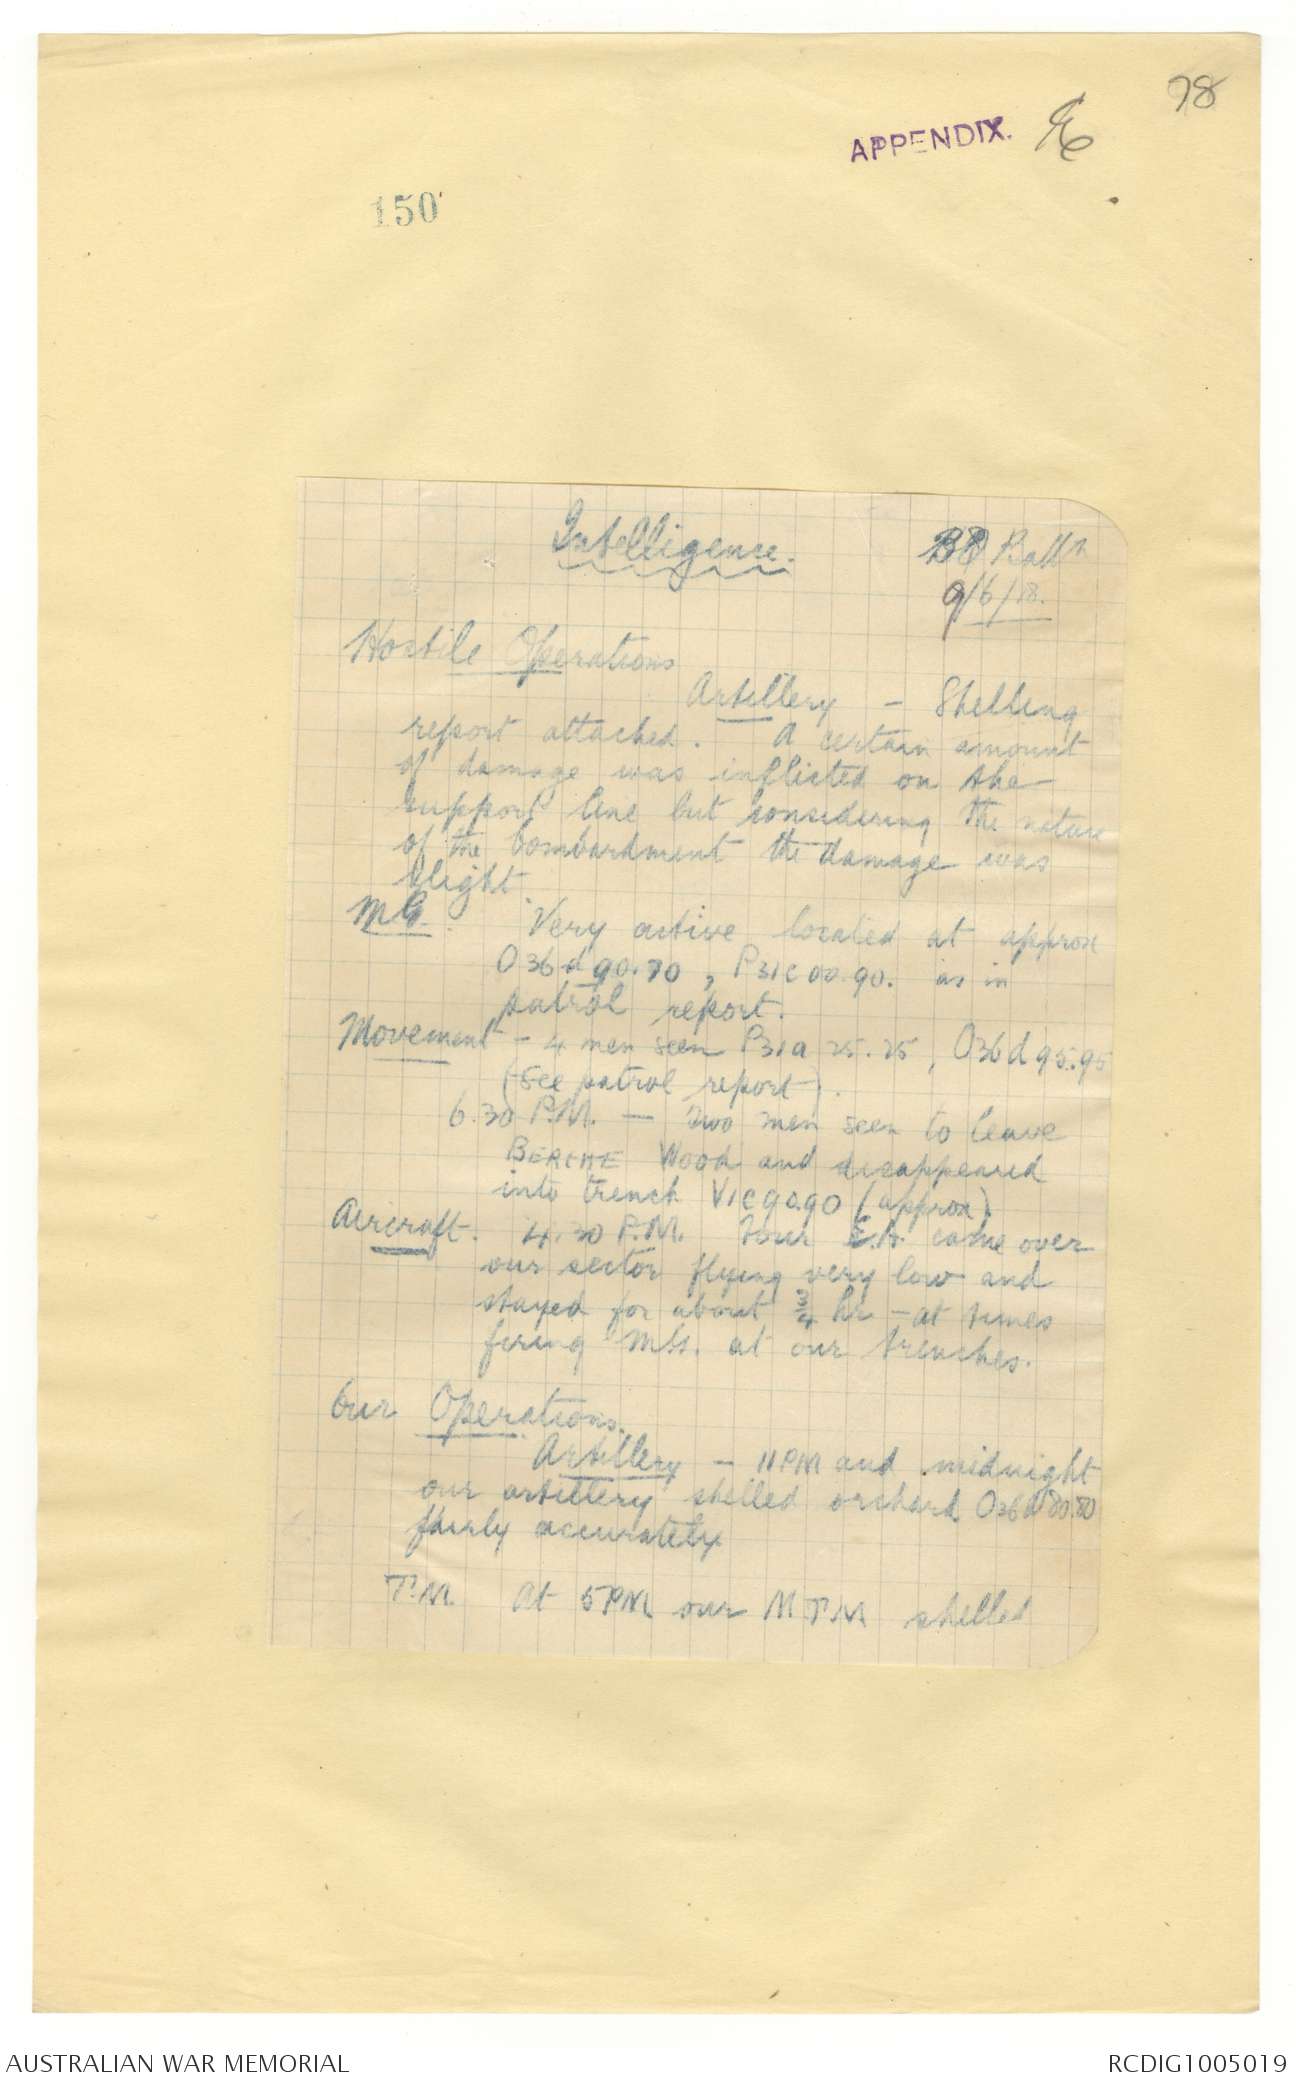 78
APPENDIX. E
150
Intelligence.
Battn
9/6/18.
Hostile Operations
Artillery - Shelling
report attached. A certain amount
of damage was inflicted on the
support line but considering the nature
of the bombardment the damage was
slight
MG. Very active located at approx
O36d90.70, P31c00.90. as in
patrol report.
Movement - 4 men seen P31a 25.25, O36d95.95
(See patrol report).
6.30 P.M. - Two men seen to leave
Wood and disappeared
into trench V1c90.90 (approx).
Aircraft. 4.30 P.M. Four E.A. came over
our sector flying very low and
stayed for about ¾ hr - at times
firing M.Gs. at our trenches.
Our Operations.
Artillery - 11PM and midnight
our artillery shelled orchard O36d80.80
fairly accurately
T.M. At 5PM our MTM shelled
AUSTRALIAN WAR MEMORIAL
RCDIG1005019